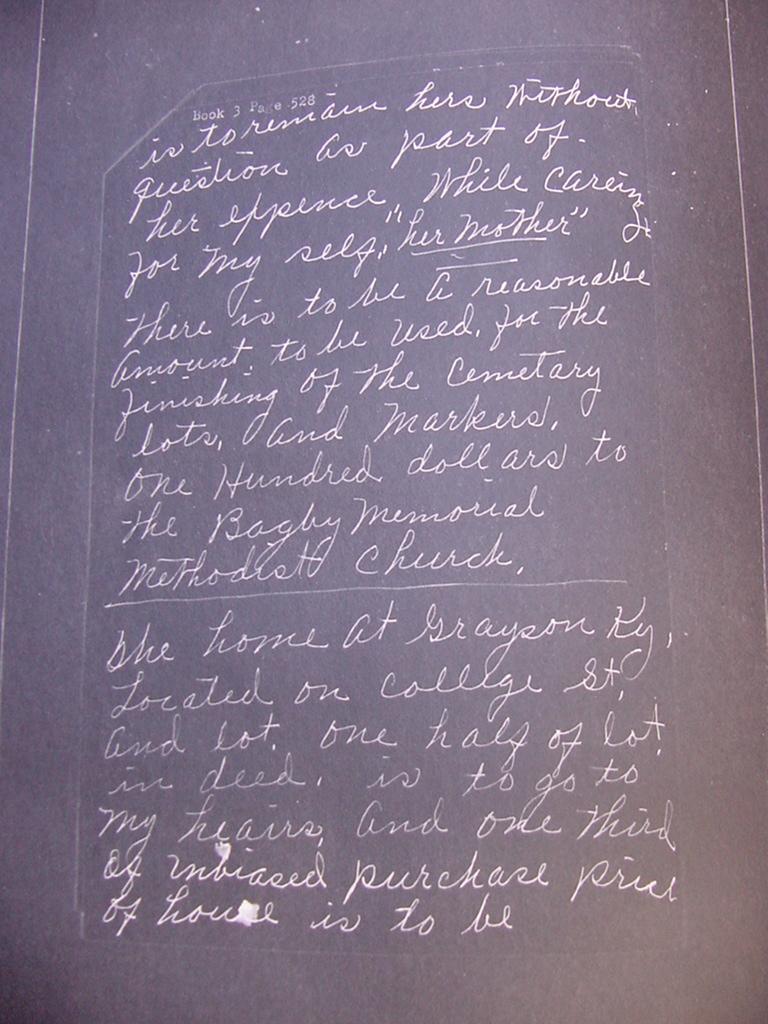 Book 3 Page 528
is to remain hers without
question as part of
her eppence, While careing
for my self, "her mother"
There is to be a reasonable
amount, to be used, for the
finishing of the Cemetary
lots, and markers.
One Hundred dollars to
the Bagby Memorial
Methodist Church.
The home at Grayson Ky,
Located on College St,
and lot, one half of lot
in deed, is to go to
my heairs, and one third
of unbiased purchase price
of house is to be